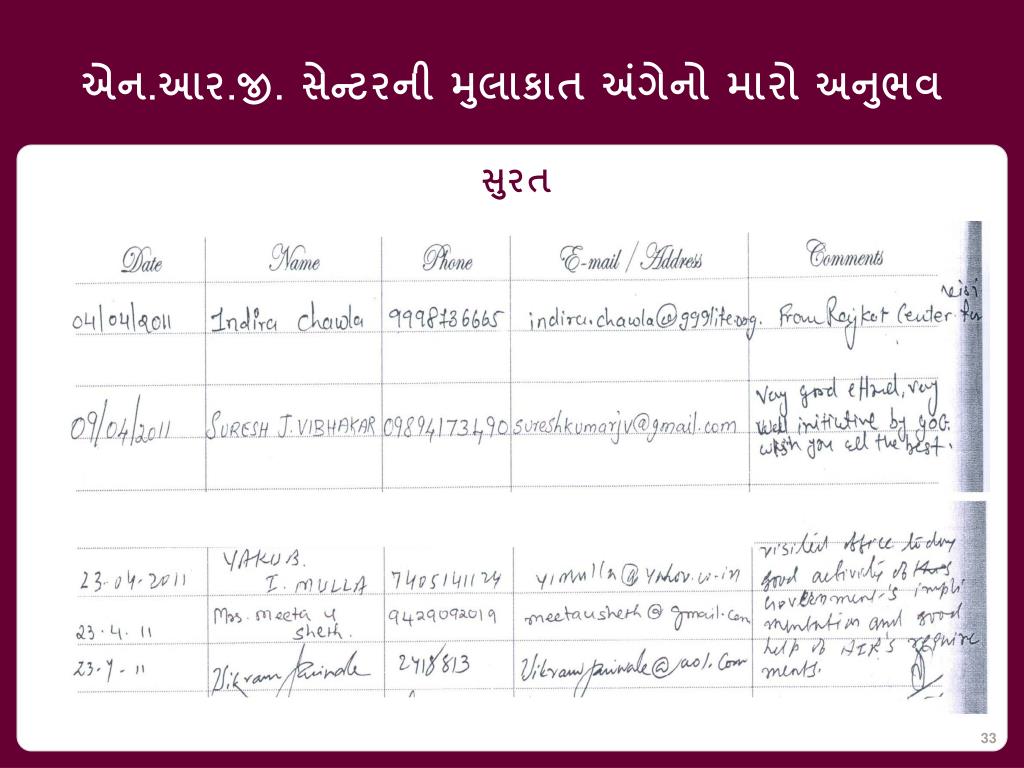 એન.આર.જી. સેન્ટરની મુલાકાત અંગેનો મારો અનુભવ
સુરત
Date Name Phone E-mail / Address Comments
04/04/2011 Indira Chawla 9998736665 indira.chawla@ggglife.org. From Rajkot Center
09/04/2011 SURESH J. VIBHAKAR 09894173490 sureshkumarjv@gmail.com
Very good effort, very
well initiative by GOG.
wish you all the best.
23-04-2011 YAKUB.
I. MULLA 7405141124 yimulla@yahoo.co.in
23-4-11 Mrs. Meeta U
Sheth. 9429092019 meetausheth@gmail.com
23-4-11 Vikram 2418813 @aol.com
visited office today
good activity of
Government's impli
mentation and good
help of NIR's require
ments.
33